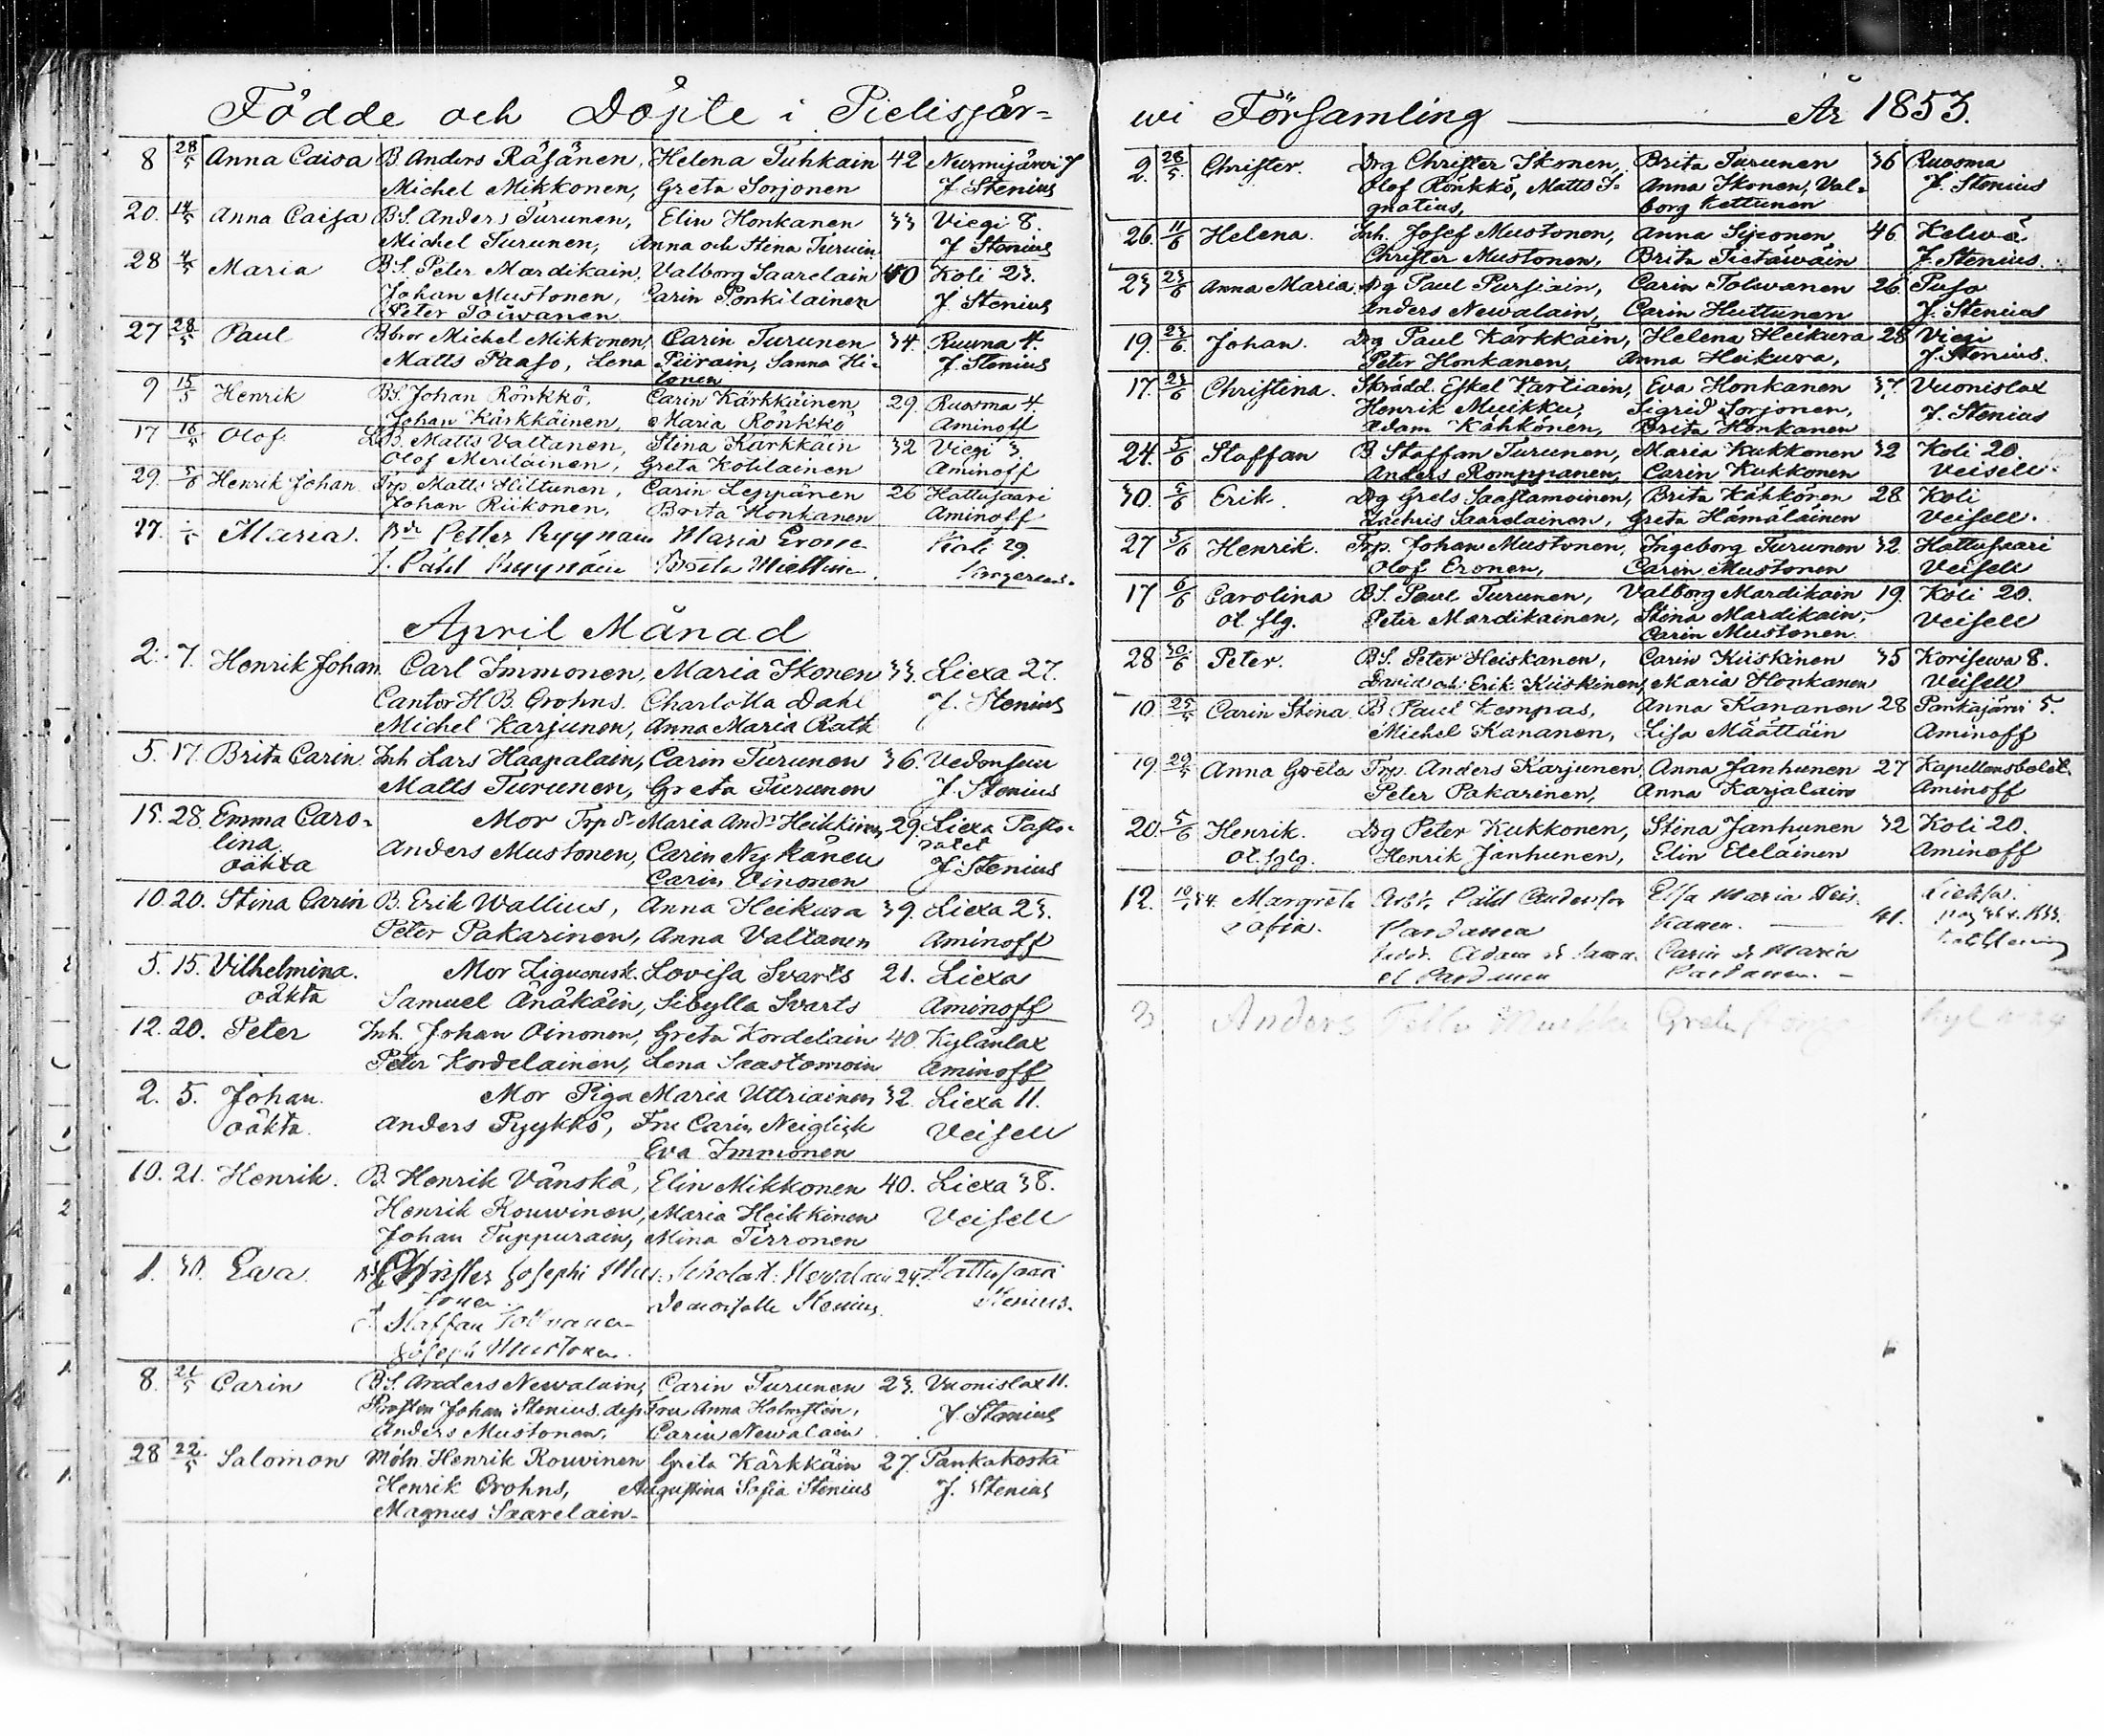 Födde och Döpte i Pielisjär-
8 28/5 Anna Caisa B Anders Räsänen, Helena Tuhkain 42 Nurmijärvi 7
Michel Mikkonen, Greta Sorjonen J. Stenius
20. 14/5 Anna Caisa BS. Anders Turunen, Elin Honkanen 33 Viegi 8.
Michel Turunen, Anna och Stina Turuin J. Stenius
28 4/5 Maria BS. Peter Mardikain, Valborg Saarelain 40 Koli 23.
Johan Mustonen, Carin Ponkilainen J. Stenius
Peter Toiwanen
27 28/5 Paul Bbror Michel Mikkonen, Carin Turunen 34. Ruuna 4.
Matts Paaso, Lena Piirain, Sanna Hi- J. Stenius
tonen
9 15/5 Henrik BS. Johan Rönkkö, Carin Kärkkäinen 29. Ruosma 4.
Johan Kärkkäinen, Maria Rönkkö Aminoff
17 16/5 Olof Matts Valtanen, Stina Kärkkäin 32 Viegi 3.
Olof Meriläinen, Greta Kotilainen Aminoff
29. 5/6 Henrik Johan Trp. Matts Hiltunen, Carin Leppänen 26 Hattusaari
Johan Riikonen, Brita Honkanen Aminoff
27. Maria. Petter Ryynäin Maria Eronen Koli 29.
Påhl Ryynäin Brita
April Månad
2. 7. Henrik Johan Carl Immonen, Maria Ikonen 33. Liexa 27.
Cantor H B. Crohns. Charlotta Dahl J. Stenius
Michel Karjunen, Anna Maria Ratt
5. 17. Brita Carin. Inh Lars Haapalain, Carin Turunen 36. Vedonsuu
Matts Turunen, Greta Turunen J. Stenius
15. 28. Emma Caro- Mor Trp dr Maria Andr Heikkinen, 29. Liexa Pasto-
lina. Anders Mustonen, Carin Nykänen ratet
oäkta Carin Oinonen J. Stenius
10. 20. Stina Carin B. Erik Wallius, Anna Heikura 39. Liexa 23.
Peter Pakarinen, Anna Valtanen Aminoff
5. 15. Vilhelmina. Mor Ziguenersk. Lovisa Svarts 21. Liexa
oäkta Samuel Änäkäin, Sibylla Svarts Aminoff
12. 20. Peter Inh. Johan Oinonen, Greta Kordelain 40. Kylänlax
Peter Kordelainen, Lena Saastamoin Aminoff
2. 5. Johan. Mor Piga Maria Uttriainen 32. Liexa 11.
oäkta. Anders Pyykkö, Fru Carin Neiglick Veisell
Eva Immonen
10. 21. Henrik. B. Henrik Vänskä, Elin Mikkonen 40. Liexa 38.
Henrik Rouwinen, Maria Heikkinen Veisell
Johan Tuppurain, Mina Tirronen
1. 30. Ewa. Christer Josephi Mus- Scholast: Nevalain 24. Hattusaari
tonen. Demoiselle Stenius. Stenius.
Staffan Tolvanen
Joseph Mustonen.
8. 21/5 Carin BS. Anders Newalain, Carin Turunen 23. Vuonislax 11.
Prosten Johan Stenius. dess Fru Anna Holmsten, J. Stenius
Anders Mustonen, Carin Newalain
28 22/5 Salomon Möln. Henrik Rouvinen Greta Kärkkäin 27. Pankakoski
Henrik Crohns, Augustina Sofia Stenius J. Stenius
Magnus Saarelain-
wi Församling År 1853.
2. 28/5 Christer. Drg Christer Ikonen, Brita Turunen 36 Ruosma
Olof Rönkkö, Matts I- Anna Ikonen, Val- J. Stenius
gnatius, borg Kettunen
26. 11/6 Helena. Inh. Josef Mustonen, Anna Sijeonen 46 Kelwä
Christer Mustonen, Brita Tietäwäin J. Stenius.
23 23/6 Anna Maria. Drg Paul Pursiain, Carin Tolwanen 26 Puso
Anders Newalain, Carin Huttunen J. Stenius
19. 23/6 Johan. Drg Paul Kärkkäin, Helena Heikura 28 Viegi
Peter Honkanen, Anna Heikura, J. Stenius.
17. 23/6 Christina. Skrädd. Eskel Vartiain, Eva Honkanen 37. Vuonislax
Henrik Muikku, Sigrid Sorjonen, J. Stenius
Adam Kähkönen, Brita Honkanen
24. 5/6 Staffan B Staffan Turunen, Maria Kukkonen 32 Koli 20.
Anders Romppanen, Carin Kukkonen Veisell.
30. 5/6 Erik. Drg Grels Saastamoinen, Brita Kähkönen 28. Koli
Zachris Saarelainen, Greta Hämäläinen Veisell.
27 5/6 Henrik. Trp. Johan Mustonen, Ingeborg Turunen 32. Hattusaari
Olof Eronen, Carin Mustonen Veisell
17 6/6 Carolina BS. Paul Turunen, Valborg Mardikain 19. Koli 20.
ol. flg. Peter Mardikainen, Stina Mardikain, Veisell
Carin Mustonen
28 30/6 Peter. BS. Peter Heiskanen, Carin Kiiskinen 35 Korisewa 8.
David och Erik Kiiskinen, Maria Honkanen Veisell
10. 25/5 Carin Stina B Paul Kempas, Anna Kananen 28 Pankajärvi 5.
Michel Kananen, Lisa Määttäin Aminoff
19. 29/5 Anna Greta Trp. Anders Karjunen, Anna Janhunen 27 Kapellansbolet.
Peter Pakarinen, Anna Karjalain Aminoff
20. 5/6 Henrik. Drg Peter Kukkonen, Stina Janhunen 32 Koli 20.
Ol. Henrik Janhunen, Elin Eteläinen Aminoff
12. Margreta Påhl Andersson Elsa Maria
Sofia. Pardanen 41.
Adam Carin & Maria
Pardanen Pardanen.
3. Anders Greta